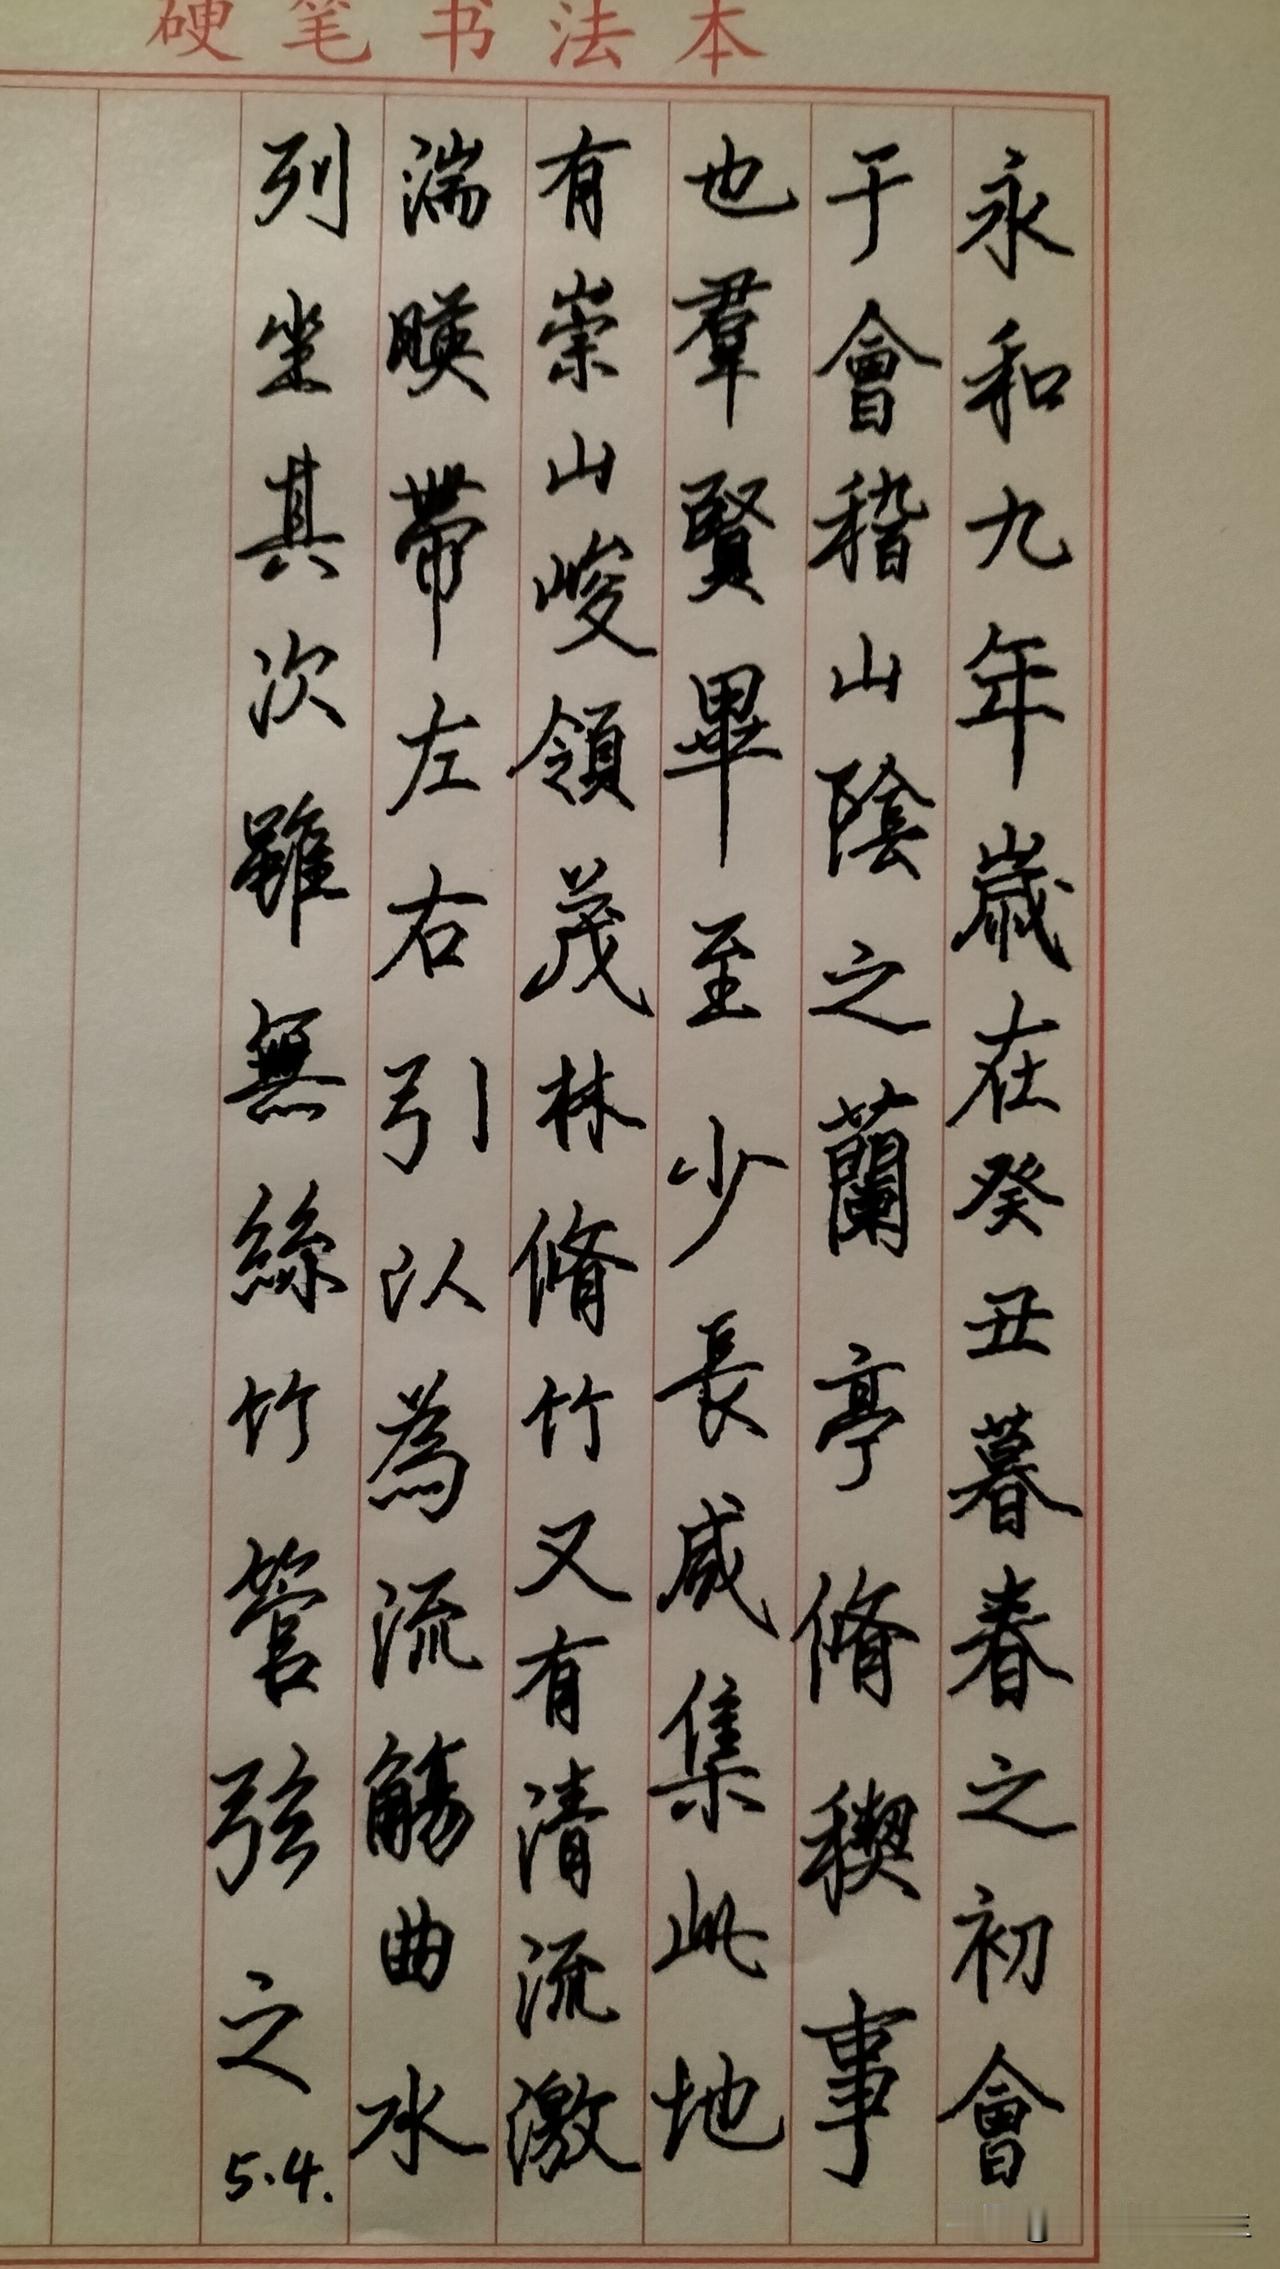 硬笔书法本
永和九年歲在癸丑暮春之初會
于會稽山陰之蘭亭脩稧事
也羣賢畢至少長咸集此地
有崇山峻領茂林脩竹又有清流激
湍暎帶左右引以為流觴曲水
列坐其次雖無絲竹管弦之
5.4.